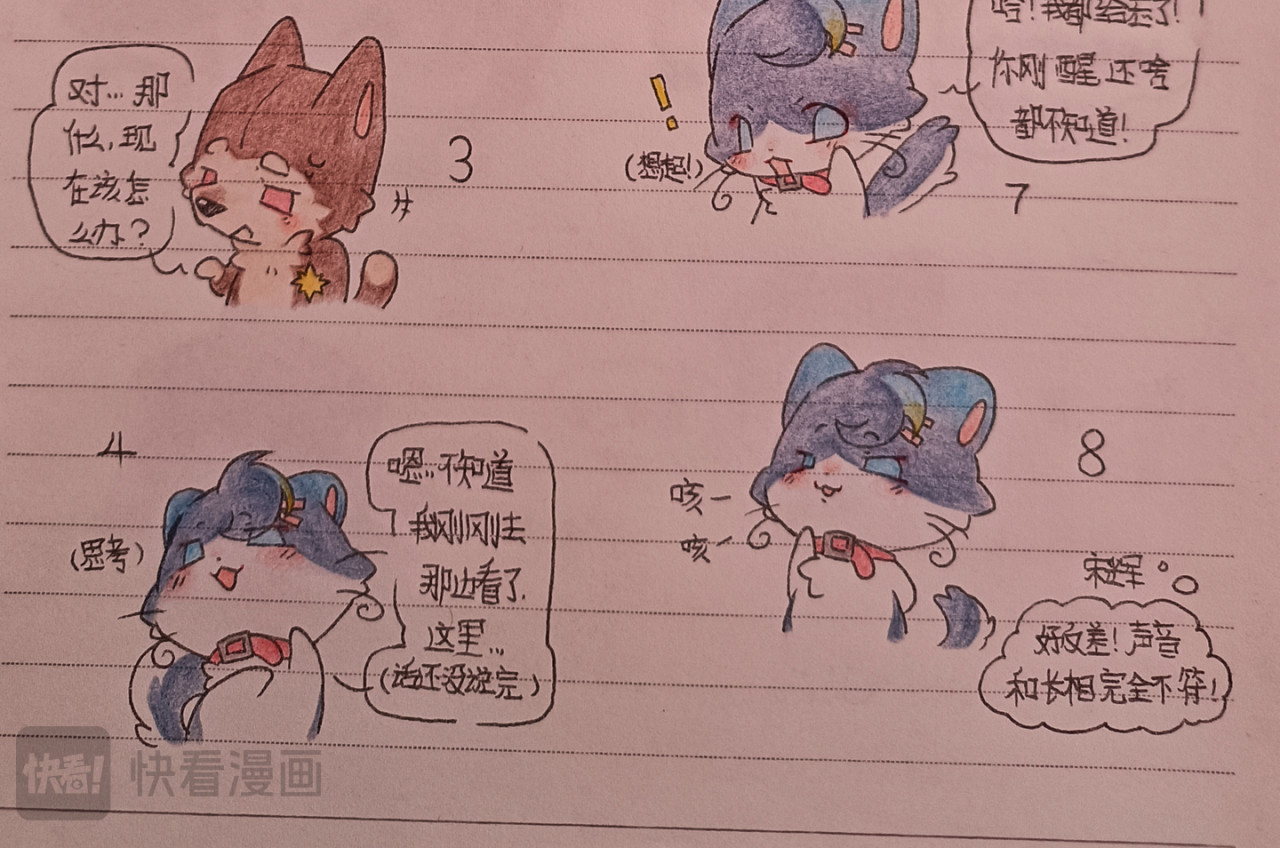 3
对…那
什么,现
在该怎
么办?
4
(思考)
嗯…不知道
我刚刚去
那边看了.
这里…
(话还没说完)
啥!我都给忘了!
你刚醒还啥
都不知道!
!
(想起!)
7
8
咳一
咳
宋辉
好反差!声音
和长相完全不符!
快看!
快看漫画